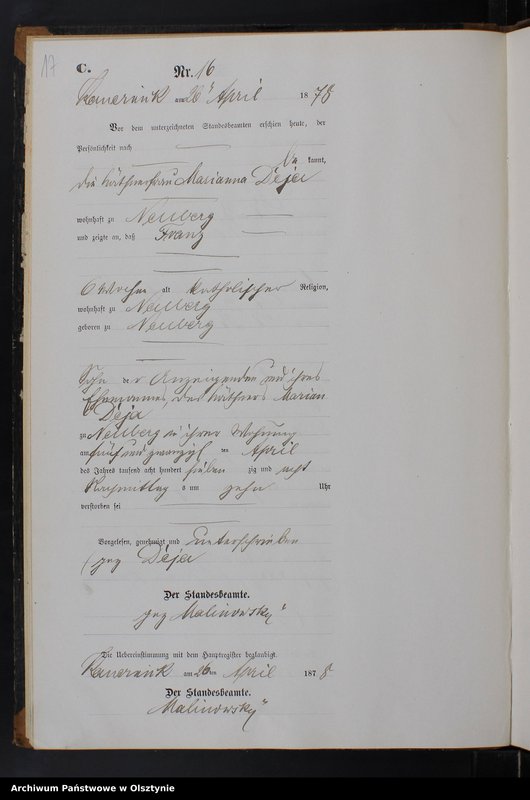 17
C.
Nr. 16
am 26 ten April 1878
Vor dem unterzeichneten Standesbeamten erschien heute, der
Persönlichkeit nach
be kannt,
die Käthnerfrau Marianna Deja
wohnhaft zu Neuberg
und zeigte an, daß Franz
6 Wochen alt katholischer Religion,
wohnhaft zu Neuberg
geboren zu Neuberg
Sohn der Anzeigenden und ihres
Ehemannes, des Käthners Marian
Deja
zu Neuberg in ihrer Wohnung
am fünf und zwanzigsten April
des Jahres tausend acht hundert sieben zig und acht
Nachmittag s um zehn Uhr
verstorben sei
Vorgelesen, genehmigt und unterschrieben
(gez Deja
Der Standesbeamte.
gez Malinowsky
Die Uebereinstimmung mit dem Hauptregister beglaubigt
am 26 ten April 1878
Der Standesbeamte.
Malinowsky
Archiwum Państwowe w Olsztynie